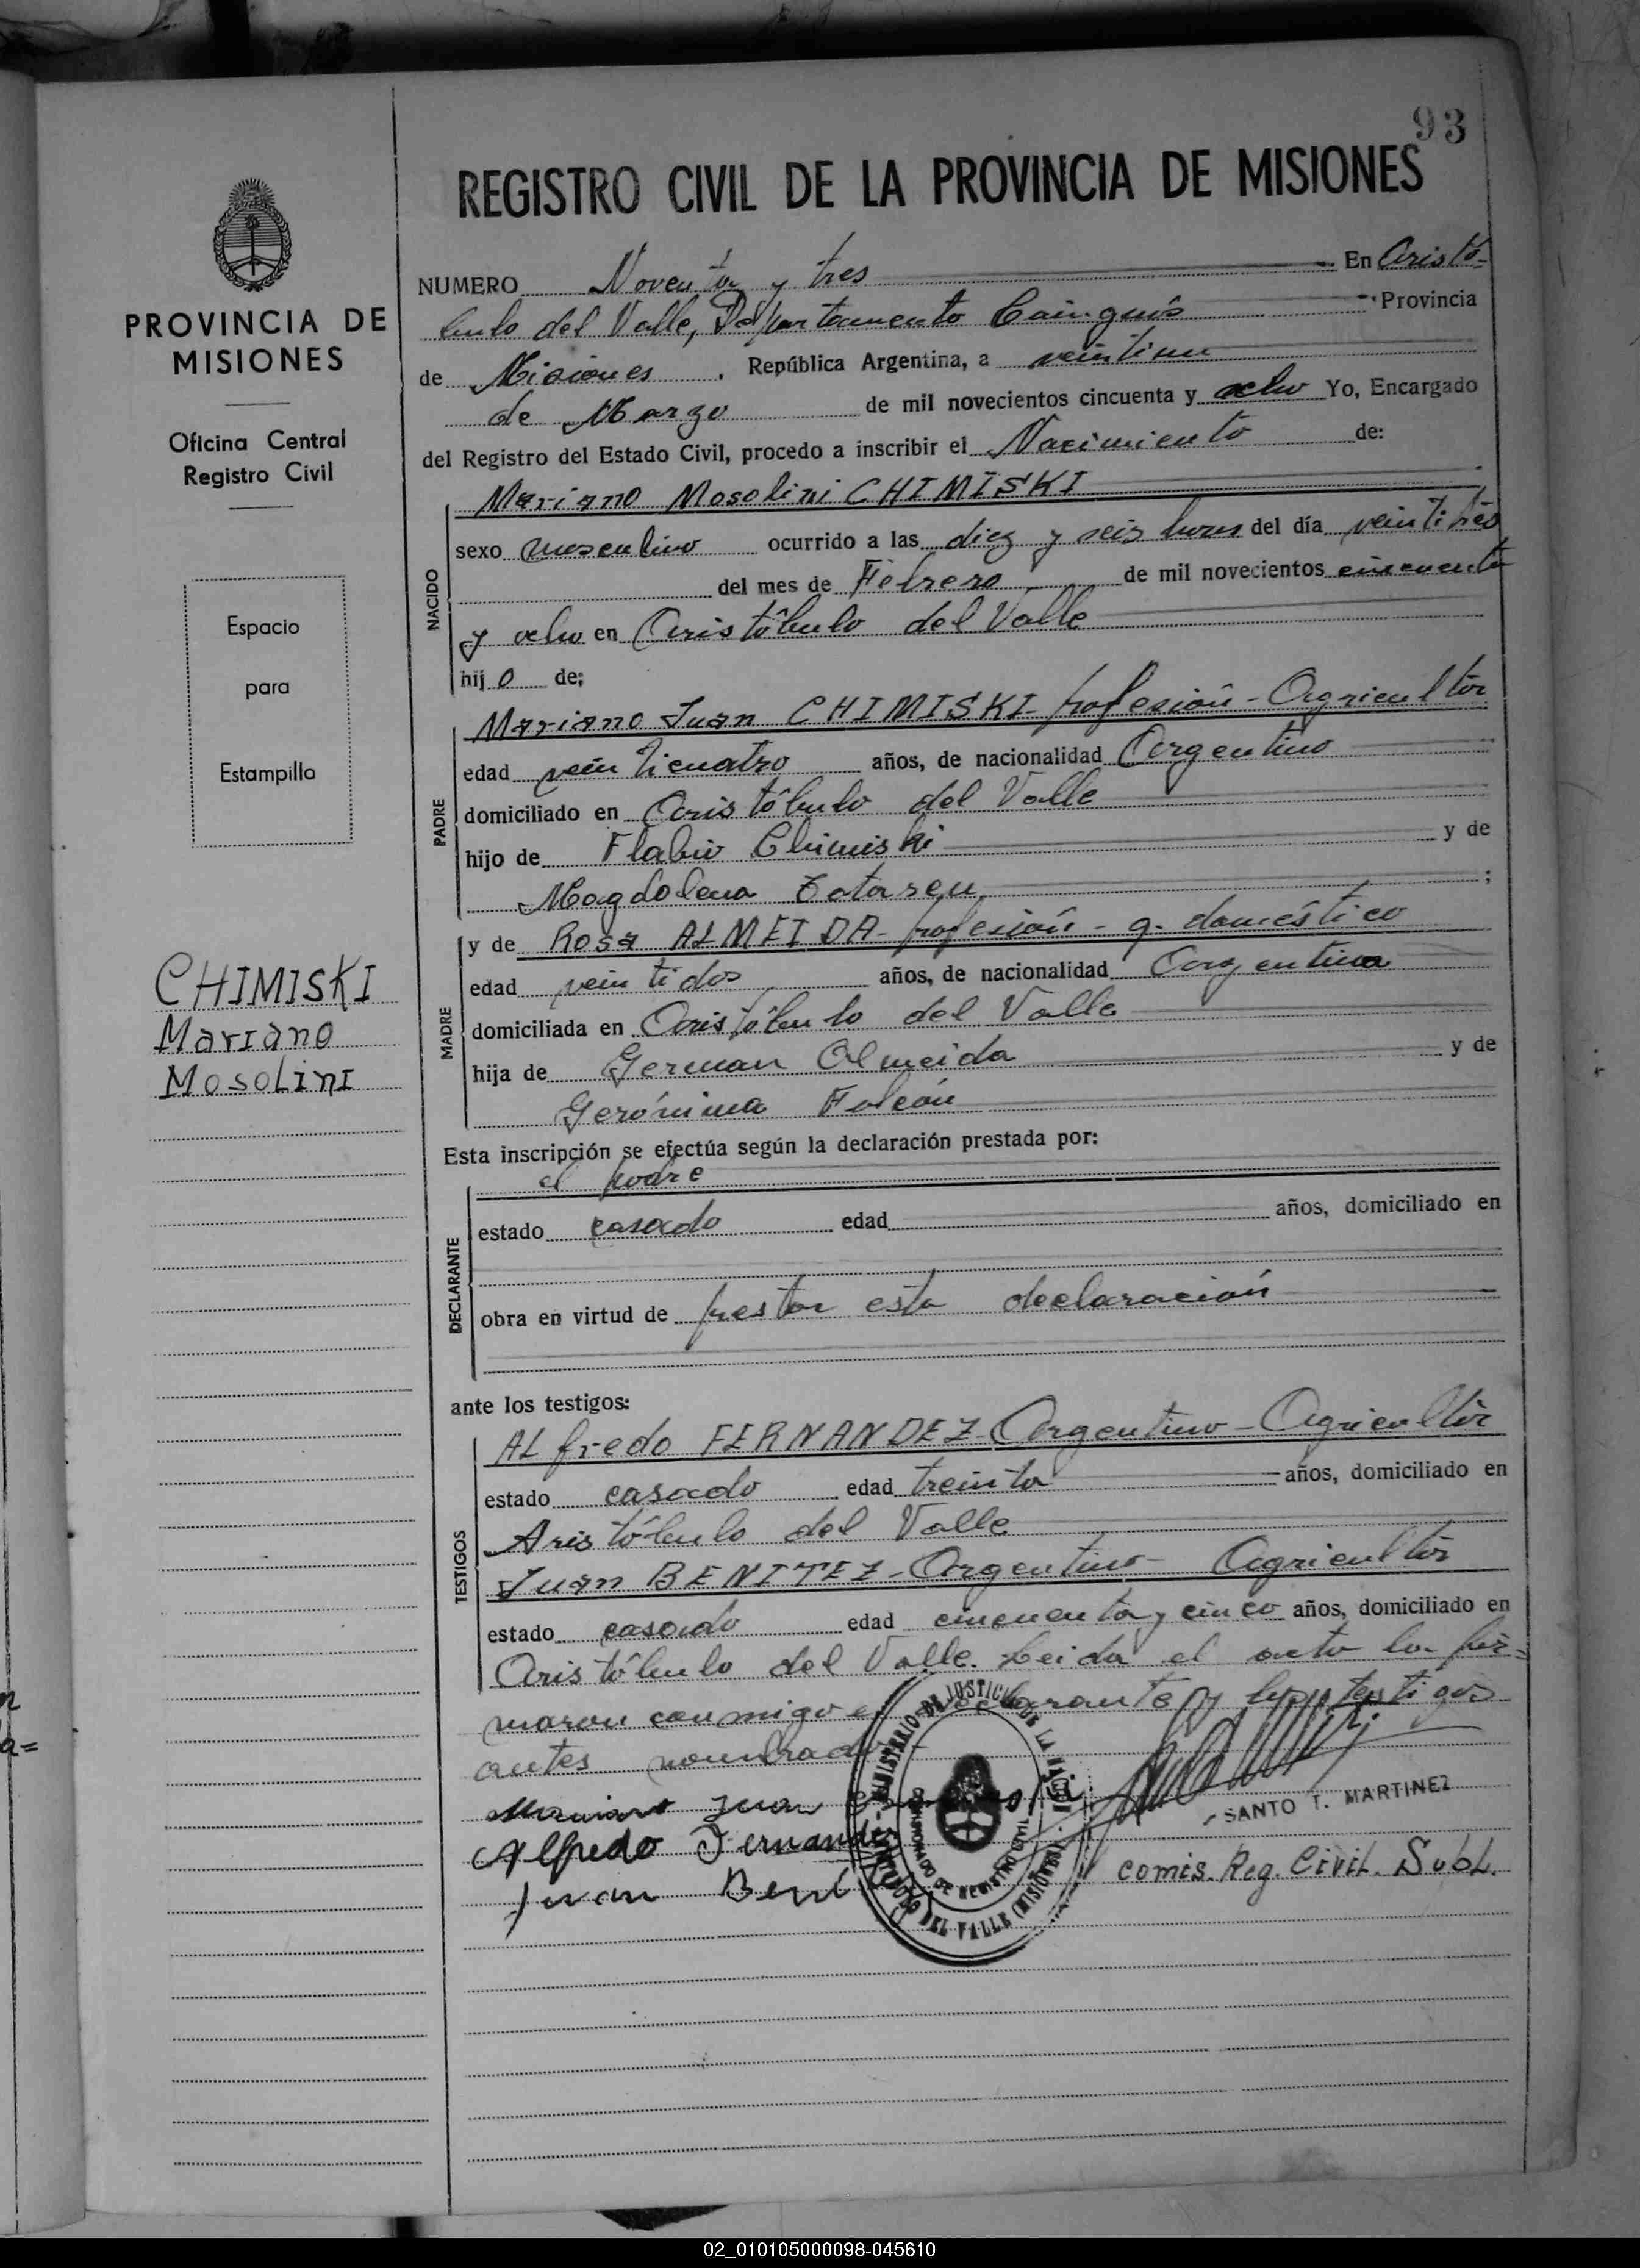 93
REGISTRO CIVIL DE LA PROVINCIA DE MISIONES
PROVINCIA DE
MISIONES
Oficina Central
Registro Civil
Espacio
para
Estampilla
CHIMISKI
Mariano
Mosolini
NUMERO Noventa y tres En Aristó-
bulo del Valle, Departamento Cainguás Provincia
de Misiones . República Argentina, a veintiun
de Marzo de mil novecientos cincuenta y ocho Yo, Encargado
del Registro del Estado Civil, procedo a inscribir el Nacimiento de:
NACIDO
Mariano Mosolini CHIMISKI
sexo masculino ocurrido a las diez y seis horas del día veintitrés
del mes de Febrero de mil novecientos cincuenta
y ocho en Aristóbulo del Valle
hijo de;
PADRE
Mariano Juan CHIMISKI profesión - Agricultor
edad veinticuatro años, de nacionalidad Argentino
domiciliado en Aristóbulo del Valle
hijo de Flabio Chimiski y de
Magdalena ;
MADRE
y de Rosa ALMEIDA - profesión - q. doméstico
edad veintidos años, de nacionalidad Argentina
domiciliada en Aristóbulo del Valle
hija de German Almeida y de
Gerónima Falcón
Esta inscripción se efectúa según la declaración prestada por:
DECLARANTE
el padre
estado casado edad años, domiciliado en
obra en virtud de prestar esta declaración
ante los testigos:
TESTIGOS
ALfredo FERNANDEZ - Argentino - Agricultor
estado casado edad treinta años, domiciliado en
Aristóbulo del Valle
Juan BENITEZ - Argentino - Agricultor
estado casado edad cincuenta y cinco años, domiciliado en
Aristóbulo del Valle. Leida el acta la fir=
maron conmigo el declarante y los testigos
antes nombrados
Mariano Juan
Alfredo Fernandez
Juan
MINISTERIO DE JUSTICIA DE LA
DEL VALLE (MISIONES)
SANTO T. MARTINEZ
comis. Reg. Civil. Subl.
02_010105000098-045610